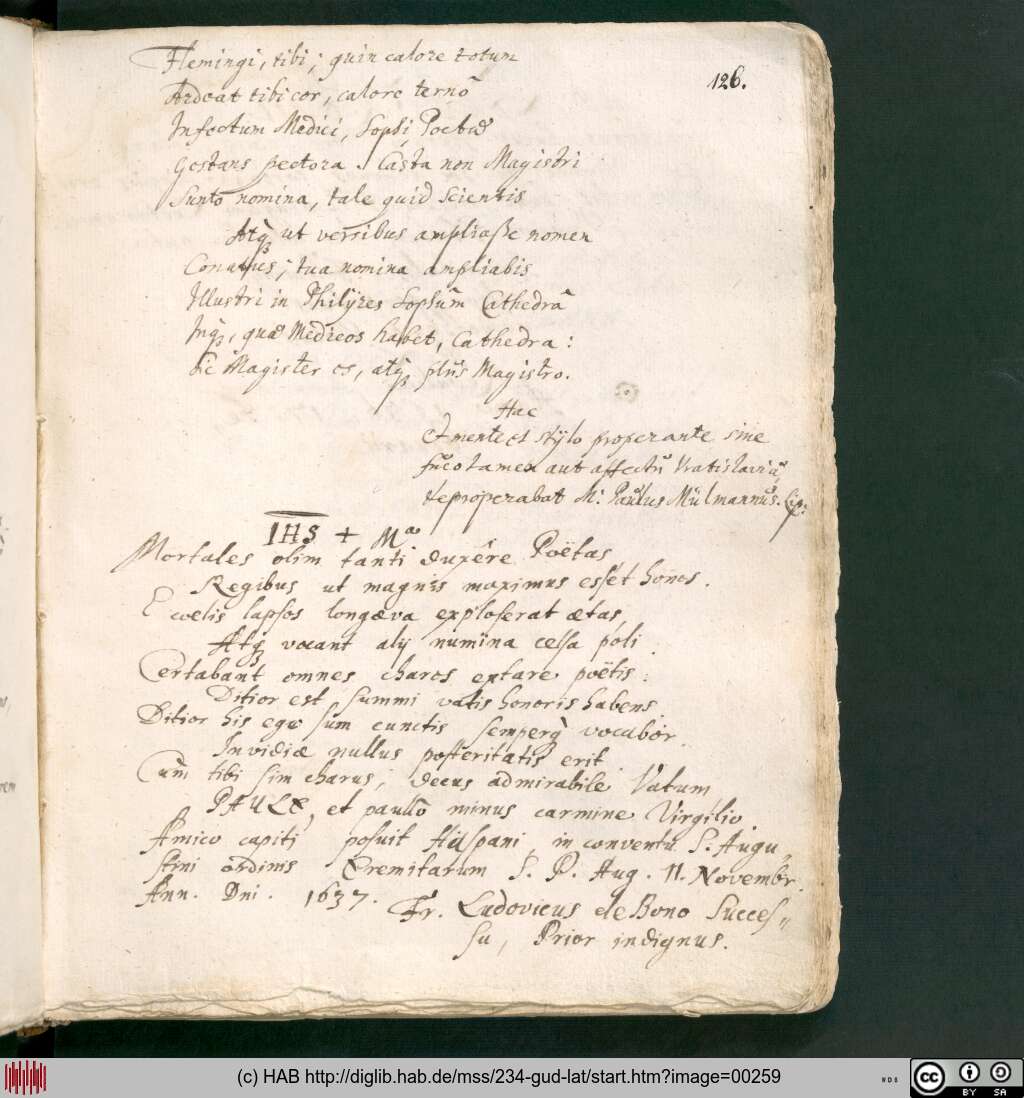 Flemingi, tibi; quin calore totum
126.
Ardeat tibi cor, calore ternô
Infectum Medici, Sophi Poetæ
Gestans pectora. Casta non Magistri
Sunto nomina, tale quid scientis
Atq; ut versibus ampliaße nomen
Conatus; tua nomina ampliabis
Illustri in Philÿres Sophûm Cathedrâ
Inq;, quæ Medicos habet, Cathedra:
Sic Magister es, atq; plus Magistro.
Hac
et mente et stÿlo properante sine
fuco tamen aut affectu Vratislaviæ
deproperabat M. Paulus Mülmannus. Lip:
IHS + Ma
Mortales olim tanti duxêre Poëtas,
Regibus ut magnis maximus esset honos.
E coelis lapsos longæva exploserat ætas,
Atq; vocant alij numina celsa poli.
Certabant omnes charos extare poëtis:
Ditior est summi vatis honoris habens.
Ditior his ego sum cunctis semperq; vocabor.
Invidiæ nullus posteritatis erit.
Cum tibi sim charus, decus admirabile Vatum
PAULE, et paullo minus carmine Virgilio.
Amico capiti posuit Huspani, in conventu S. Augu„
stini ordinis Eremitarum S. P. Aug. 11. Novembr.
Ann. Dni. 1637. Fr. Ludovicus de Bono Succes„
su, Prior indignus.
(c) HAB http://diglib.hab.de/mss/234-gud-lat/start.htm?image=00259
cc BY SA